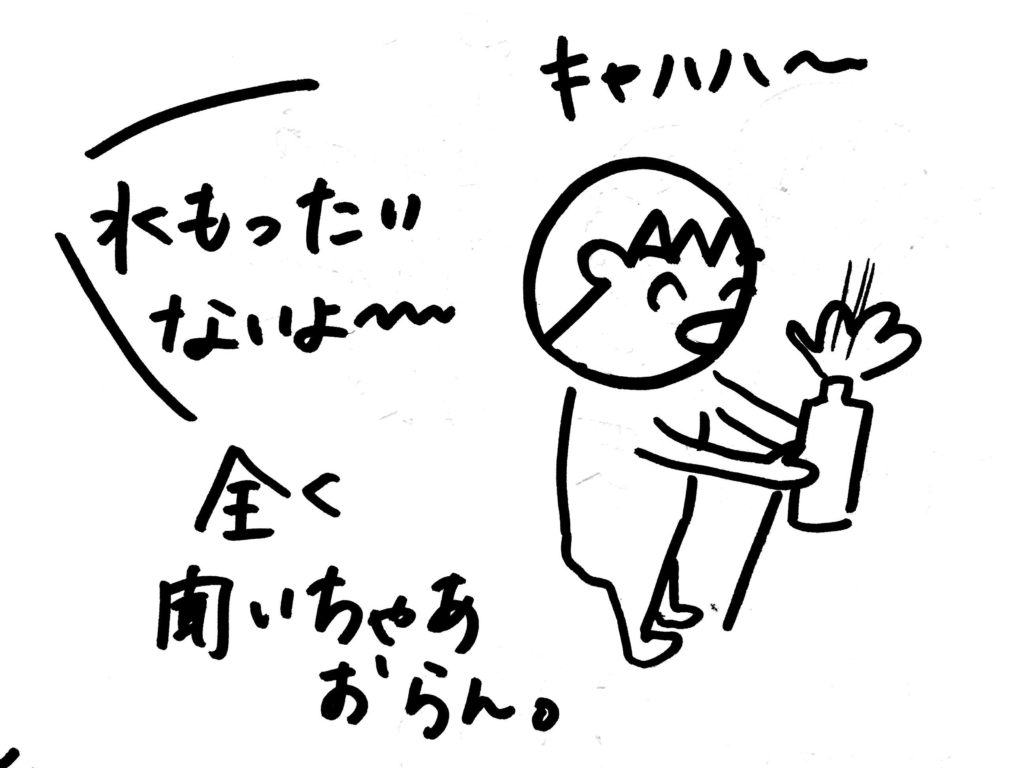 キャハハ〜
水もったい
ないよ〜〜
全く
聞いちゃあ
おらん。